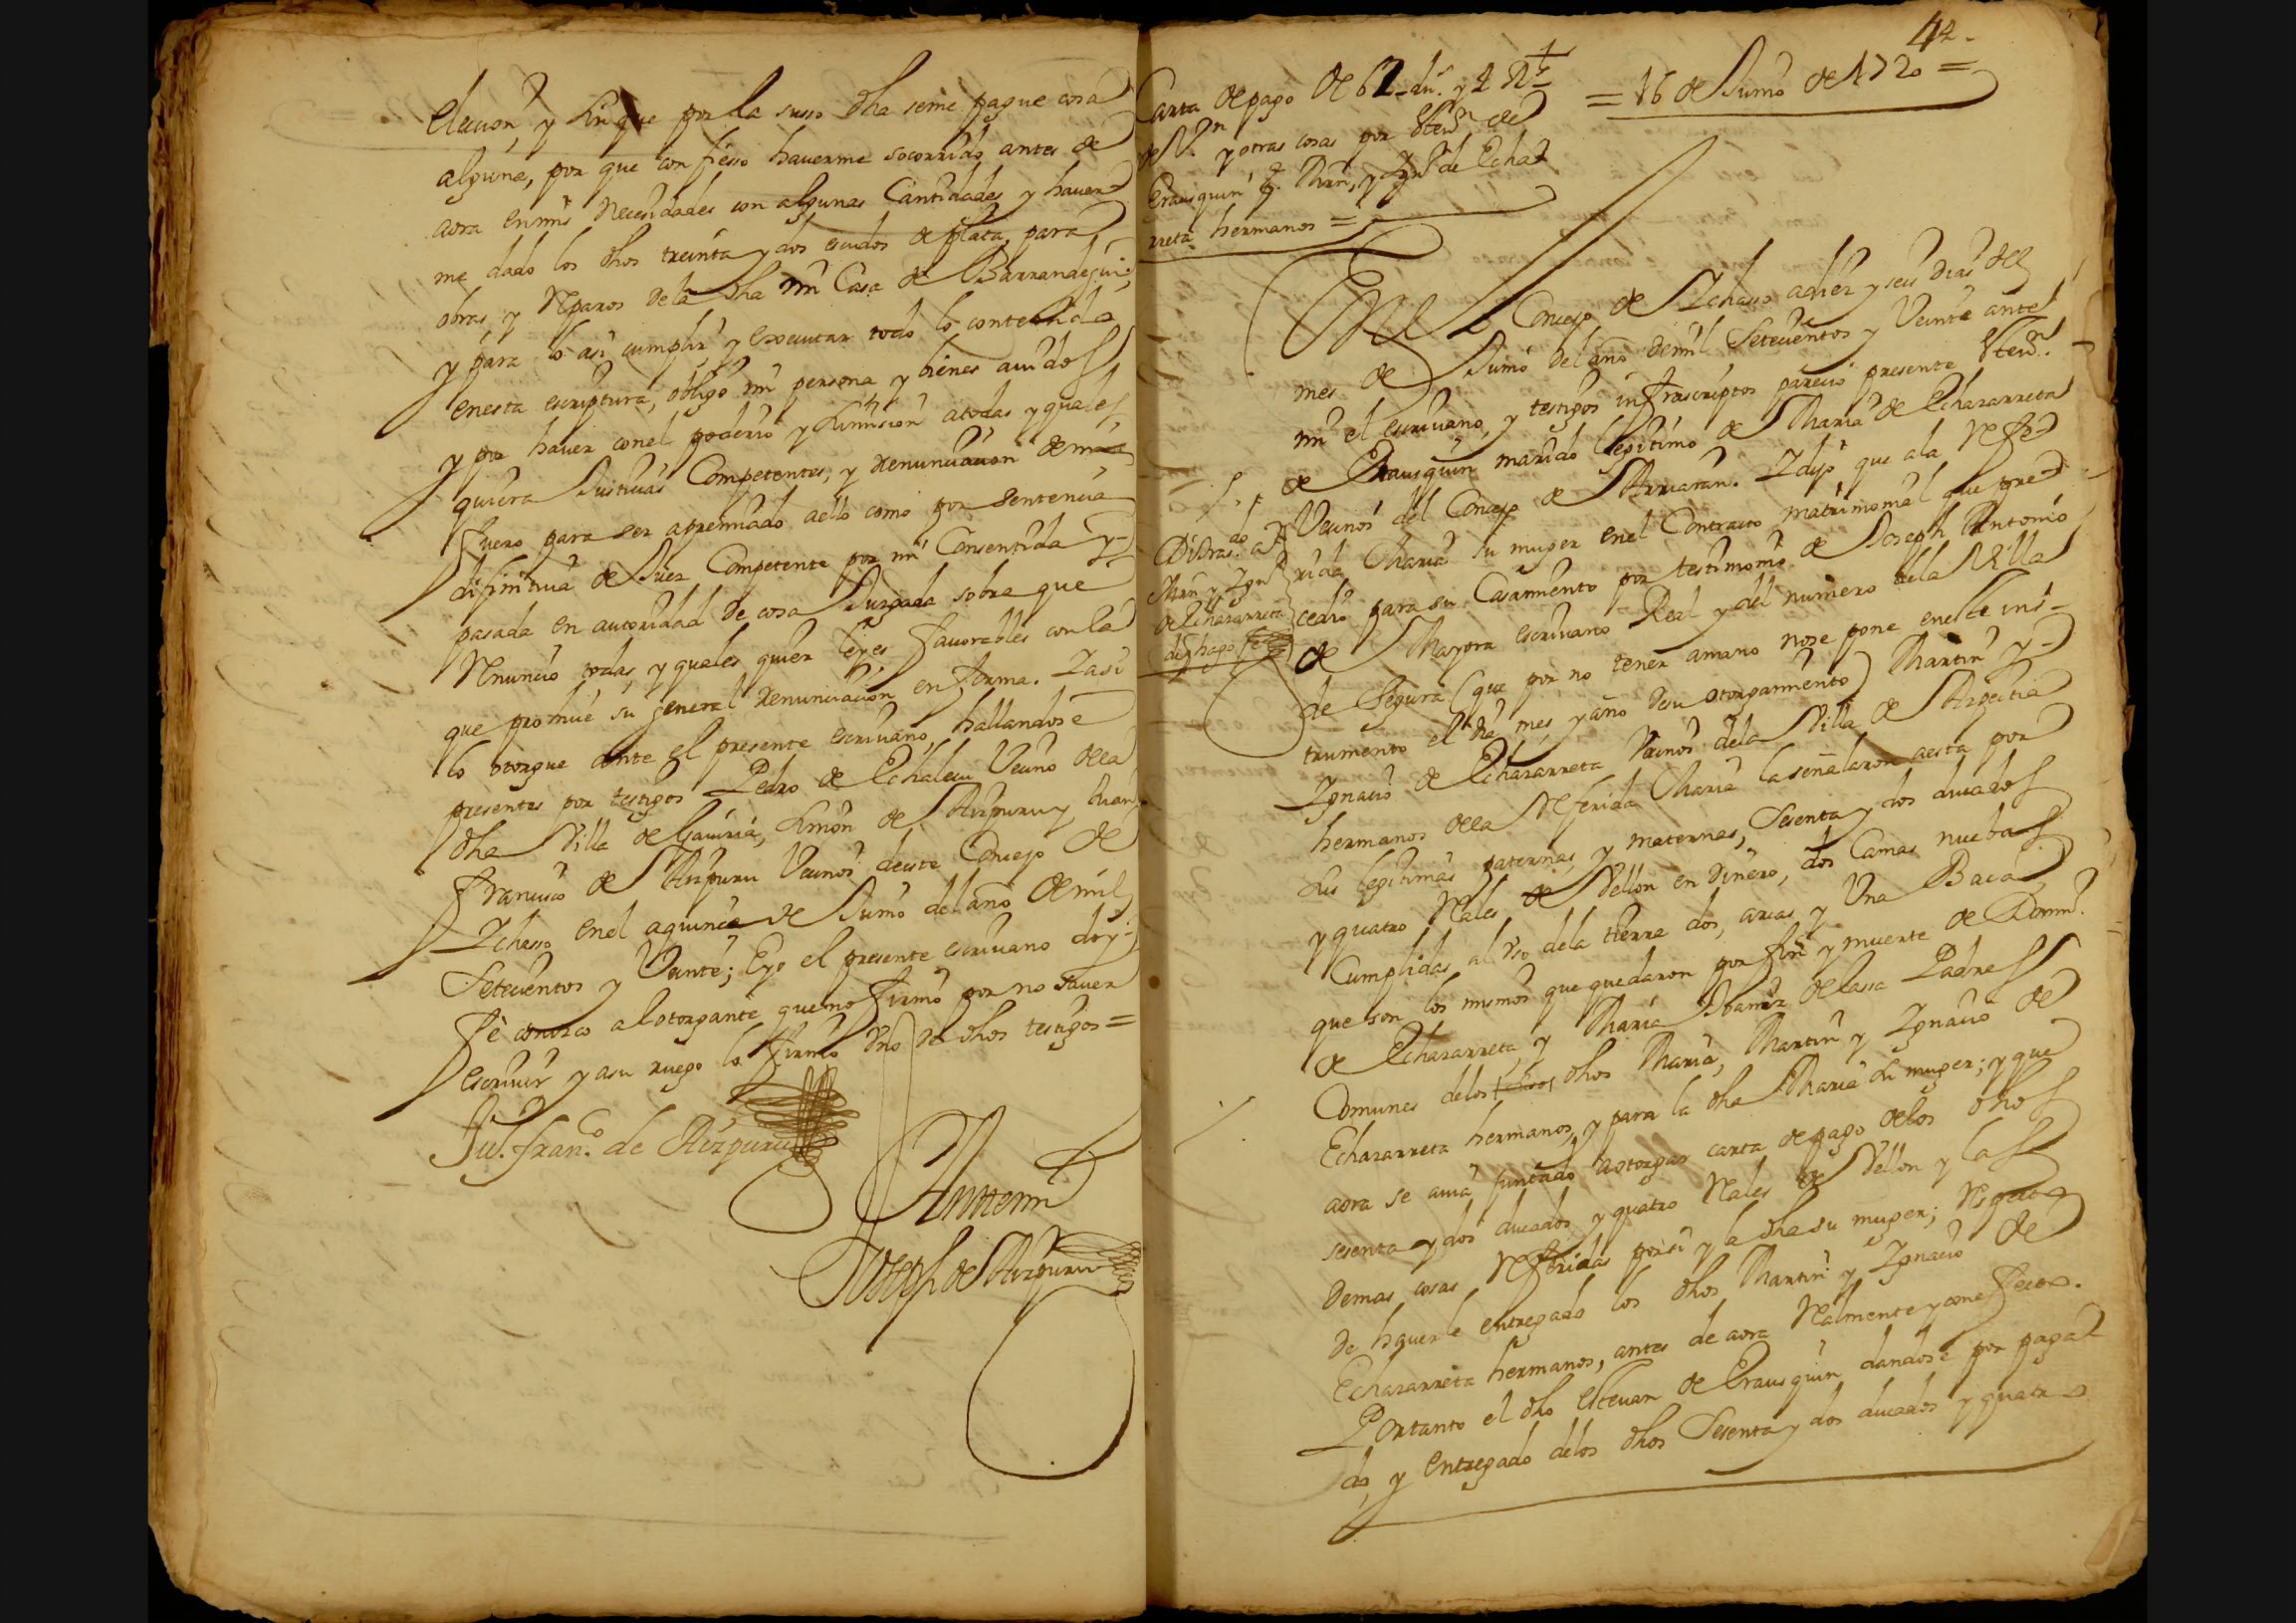 eleccion, y sin que por la suso dha seme pague cosa
alguna, por que confiesso hauerme socorrido antes de
aora en mis Necesidades con algunas Cantidades y hauer
me dado los dhos treinta y dos escudos de plata, para
obras, y Reparos dela dha mi Casa de Barrandegui;
y para lo asi cumplir y executar todo lo contenido
enesta escriptura, obligo mi persona y bienes auidos
y por hauer conel poderio y sumision atodas y quales
quiera Justicias Competentes, y renunciacion demi
fuero para ser apremiado aello como por sentencia
difinitiua de Juez Competente por mi Consentida y
pasada en autoridad de cosa Juzgada sobre que
Renuncio todas, y quales quier leyes fauorables con la
que prohiue su general renunciacion en forma. Y asi
lo otorgue ante el presente escriuano, hallandose
presentes por testigos Pedro de Echalecu Vecino dela
dha Villa de Gauiria, Simon de Aizpuru y Juan
Francisco de Aizpuru Vecinos deeste Concejo de
Ychasso enel aquince de Junio del año de mil
Setecientos y Veinte; Eyo el presente escriuano doy
fè conozco alotorgante que no firmò por no sauer
escriuir y asu ruego lo firmò Vno de dhos testigos =
Ju. Fran.co de Aizpuru
Antemi
Joseph de Aizpuru
42.
Carta de pago de 62 du.s y 4 R.s
de V.n y otras cosas por Steuan de
Erausquin a Mrn, y Ygn.o de Echaza
rreta hermanos =
= 16 de Junio de 1720 =
Enel Concejo de Ychasso adiez y seis dias del
mes de Junio del año demil Setecientos y Veinte ante
mi el escriuano, y testigos infrascriptos pareciò presente Steuan
de Erausquin marido legitimo de Maria de Echazarreta
Vecinos del Concejo de Arriaran. Y dijo que ala Refe
rida Maria su muger enel Contracto matrimonial que pre
cediò para su Casamiento por testimonio de Joseph Antonio
de Mayora escriuano Real y del numero dela Villa
de Segura (que por no tener amano nose pone eneste ins
trumento el dia, mes, y año desu otorgamiento) Martin y
Ygnacio de Echazarreta Vecinos dela Villa de Azpeitia
hermanos dela Referida Maria la señalaron aesta por
sus legitimas paternas, y maternas, Sesenta y dos ducados
y quatro Reales de Vellon en dinero, dos Camas nuebas
Cumplidas al Vso dela tierra dos, arcas, y Vna Baca,
que son los mismos que quedaron por fin y muerte de Domin.o
de Echazarreta, y Maria Ybañez de Lassa Padres
Comunes delos dhos Maria, Martin y Ygnacio de
Echazarreta hermanos, y para la dha Maria su muger; y que
aora se auia juntado aotorgar carta de pago delos dhos
sesenta y dos ducados y quatro Reales de Vellon y las
demas cosas Referidas por si y la dha su muger; Respecto
de hauerle entregado los dhos Martin y Ygnacio de
Echazarreta hermanos, antes de aora Realmente y con efecto.
Portanto el dho esteuan de Erausquin dandose por paga
do, y entregado delos dhos Sesenta y dos ducados y quatro
Di tras.do a
Mrn y Ygn.o
de Echazarreta
dello hago fe